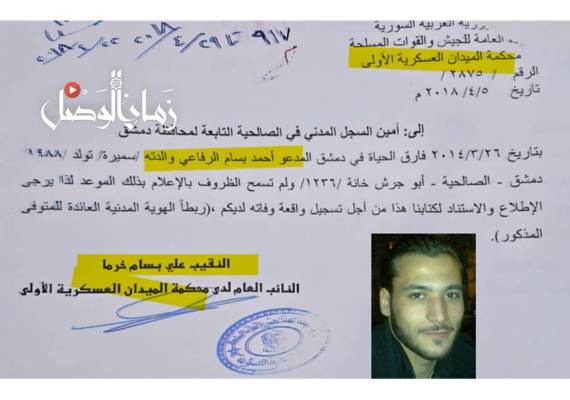 ٩١٧
٢٠١٨/٤/٢٩
العامة للجيش والقوات المسلحة
محكمة الميدان العسكرية الأولى
الرقم / ٢٨٧٥/
تاريخ ٢٠١٨/٤/٥ م
زمان الوصل
إلى: أمين السجل المدني في الصالحية التابعة لمحافظة دمشق
بتاريخ ٢٠١٤/٣/٢٦ فارق الحياة في دمشق المدعو أحمد بسام الرفاعي والدته /سميرة/ تولد /١٩٨٨/
دمشق - الصالحية - أبو جرش خانة /١٢٣٦/ ولم تسمح الظروف بالإعلام بذلك الموعد لذا يرجى
الإطلاع والاستناد لكتابنا هذا من أجل تسجيل واقعة وفاته لديكم ،(ربطاً الهوية المدنية العائدة للمتوفى
المذكور).
النقيب علي بسام خرما
النائب العام لدى محكمة الميدان العسكرية الأولى